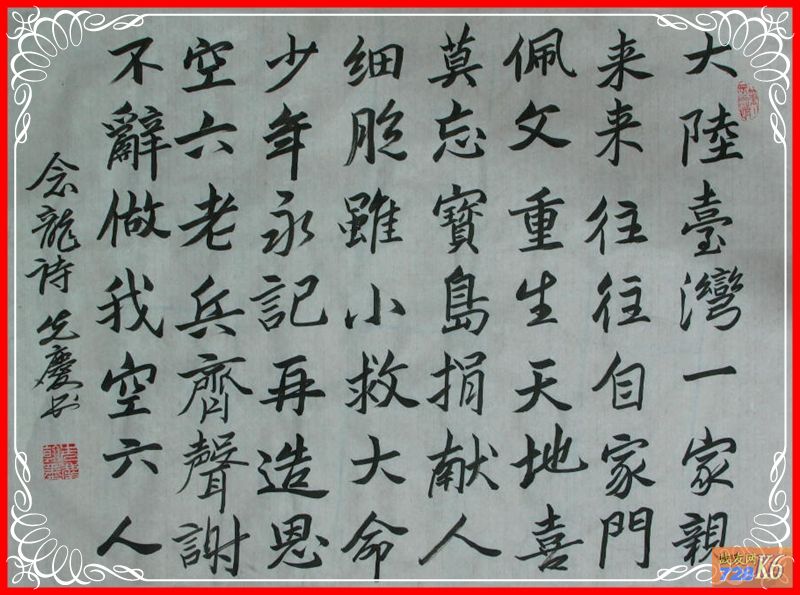 大陸臺灣一家親
来来往往自家門
佩文重生天地喜
莫忘寶島捐献人
细胞雖小救大命
少年永記再造恩
空六老兵齊聲謝
不辭做我空六人
念龍詩 先慶书
战友网
728 K6